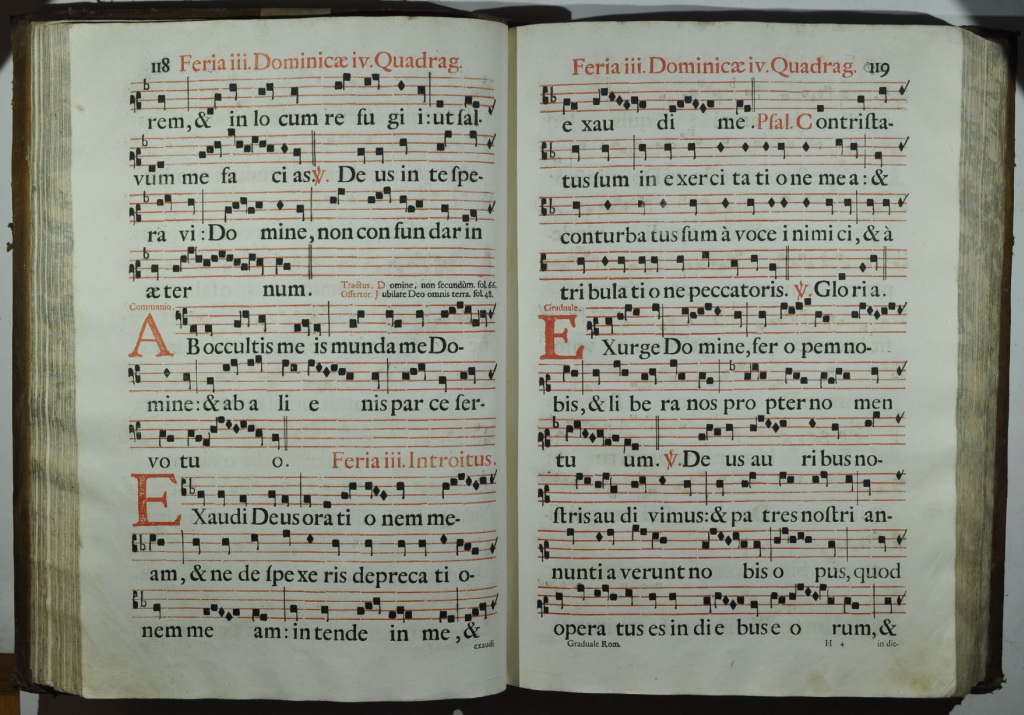 118 Feria iii. Dominicæ iv. Quadrag.
rem, & in lo cum re fu gi i: ut ſal-
vum me fa ci as. ℣. De us in te ſpe-
ra vi: Do mine, non con fun dar in
æ ter num. Tractus. D omine, non ſecundùm. fol. 66.
Offertor. J ubilate Deo omnis terra. fol. 48.
Communio.
A B occultis me is munda me Do-
mine: & ab a li e nis par ce ſer-
vo tu o. Feria iii. Introitus.
E Xaudi Deus ora ti o nem me-
am, & ne de ſpe xe ris depreca ti o-
nem me am: in tende in me, &
exaudi
Feria iii. Dominicæ iv. Quadrag. 119
e xau di me. Pſal. C ontriſta-
tus ſum in exerci ta ti o ne me a: &
conturba tus ſum à voce i nimi ci, & à
tri bula ti o ne peccatoris. ℣. Glo ri a.
Graduale.
E Xurge Do mine, fer o pem no-
bis, & li be ra nos pro pter no men
tu um. ℣. De us au ri bus no-
ſtris au di vimus: & pa tres noſtri an-
nunti a verunt no bis o pus, quod
opera tus es in di e bus e o rum, &
Graduale Rom. H 4 in die-